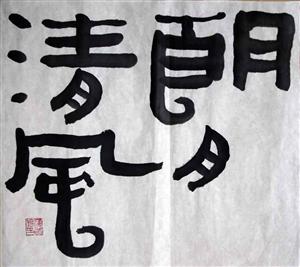 朗月
清風